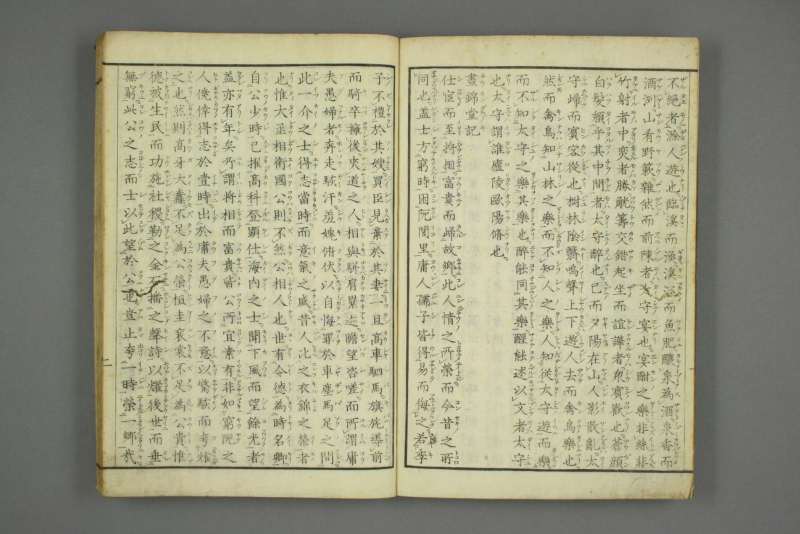 不絕者滁人遊也臨溪而漁溪深而魚肥釀泉為酒泉香而
酒洌山肴野蔌雜然而前陳者太守宴也宴酣之樂非絲非
竹射者中奕者勝觥籌交錯起坐而諠譁者衆賓歡也蒼顏
白髮頹乎其中間者太守醉也已而夕陽在山人影散亂太
守歸而賓客從也樹林陰翳鳴聲上下遊人去而禽鳥樂也
然而禽鳥知山林之樂而不知人之樂人知從太守遊而樂
而不知太守之樂其樂也醉能同其樂醒能述以文者太守
也太守謂誰廬陵歐陽脩也
晝錦堂記
仕宦而至將相富貴而歸故鄉此人情之所榮而今昔之所
同也盖士方窮時困阨閭里庸人孺子皆得易而侮之若季
子不禮於其嫂買臣見棄於其妻一旦高車駟馬旗旄導前
而騎卒擁後夾道之人相與駢肩累迹瞻望咨嗟而所謂庸
夫愚婦者奔走駭汗羞媿俯伏以自悔罪於車塵馬足之間
此一介之士得志當時而意氣之盛昔人比之衣錦之榮者
也惟大丞相衛國公則不然公相人也世有令德為時名卿
自公少時已擢高科登顯仕海内之士聞下風而望餘光者
盖亦有年矣所謂將相而富貴皆公所宜素有非如窮阨之
人僥倖得志於一時出於庸夫愚婦之不意以驚駭而夸耀
之也然則高牙大纛不足為公榮桓圭衮裳不足為公貴惟
德被生民而功施社稷勒之金石播之聲詩以耀後世而垂
無窮此公之志而士以此望於公也豈止夸一時榮一鄉哉